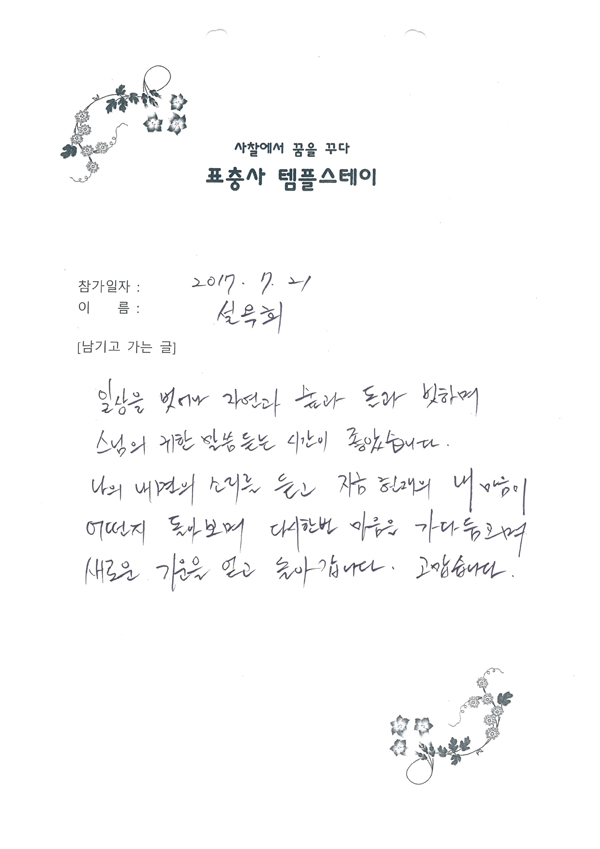 사찰에서 꿈을 꾸다
표충사 템플스테이
참가일자 : 2017. 7. 21
이 름 : 설옥희
[남기고 가는 글]
일상을 벗어나 자연과 숲과 돈과 벗하며
스님의 귀한 말씀 듣는 시간이 좋았습니다.
나의 내면의 소리를 듣고 지금 현재의 내 마음이
어떤지 돌아보며 다시한번 마음을 가다듬으며
새로운 기운을 얻고 돌아갑니다. 고맙습니다.